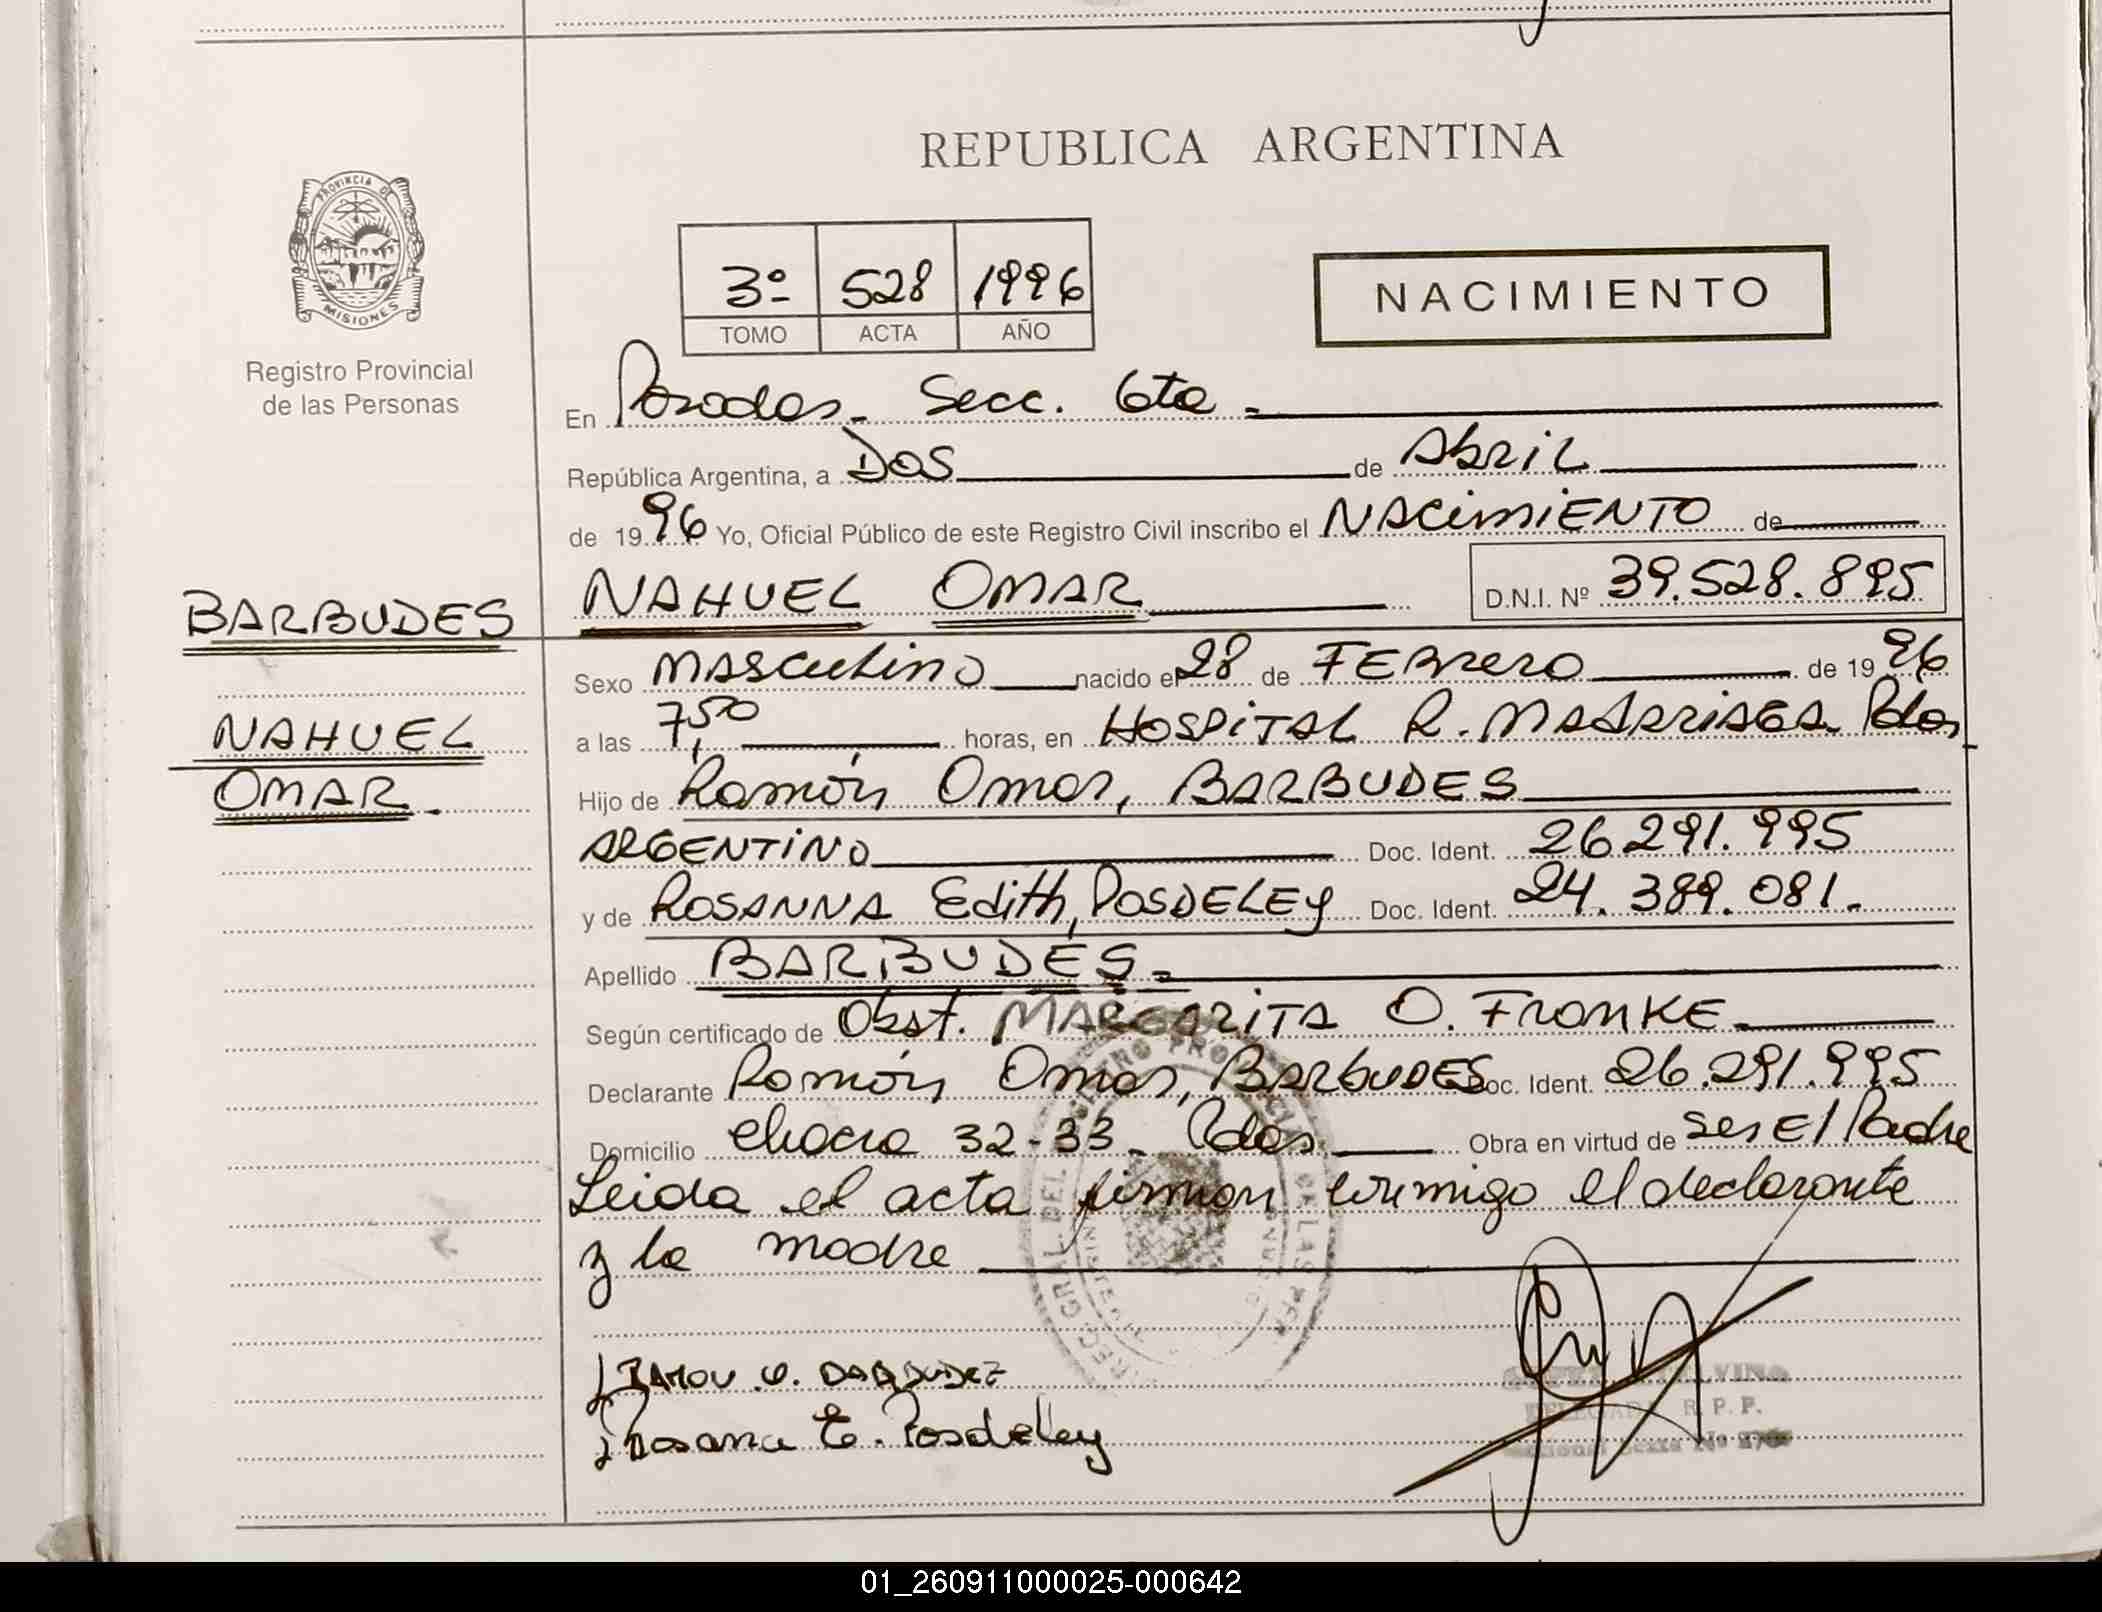 REPUBLICA ARGENTINA
PROVINCIA DE
MISIONES
Registro Provincial
de las Personas
3º 528 1996
TOMO ACTA AÑO
NACIMIENTO
En Posadas - Secc. 6ta -
República Argentina, a Dos de Abril
de 1996 Yo, Oficial Público de este Registro Civil inscribo el NACIMIENTO de
BARBUDES NAHUEL OMAR D.N.I. Nº 39.528.895
NAHUEL
OMAR.
Sexo MASCULINO nacido el 28 de FEBRERO de 1996
a las 7,50 horas, en HOSPITAL R. MADARIAGA Pdas,
Hijo de Ramón Omar, BARBUDES
ARGENTINO Doc. Ident. 26.291.995
y de ROSANNA Edith, POSDELEY Doc. Ident. 24.389.081.
Apellido BARBUDES -
Según certificado de Obst. MARGARITA O. FRONKE
Declarante Ramón Omar, BARBUDES Doc. Ident. 26.291.995
Domicilio chacra 32-33 - Pdas Obra en virtud de ser El Padre
Leida el acta firman conmigo el declarante
y la madre
RAMON O. BARBUDEZ
Rosana E. Posdeley
R. P. P.
01_260911000025-000642